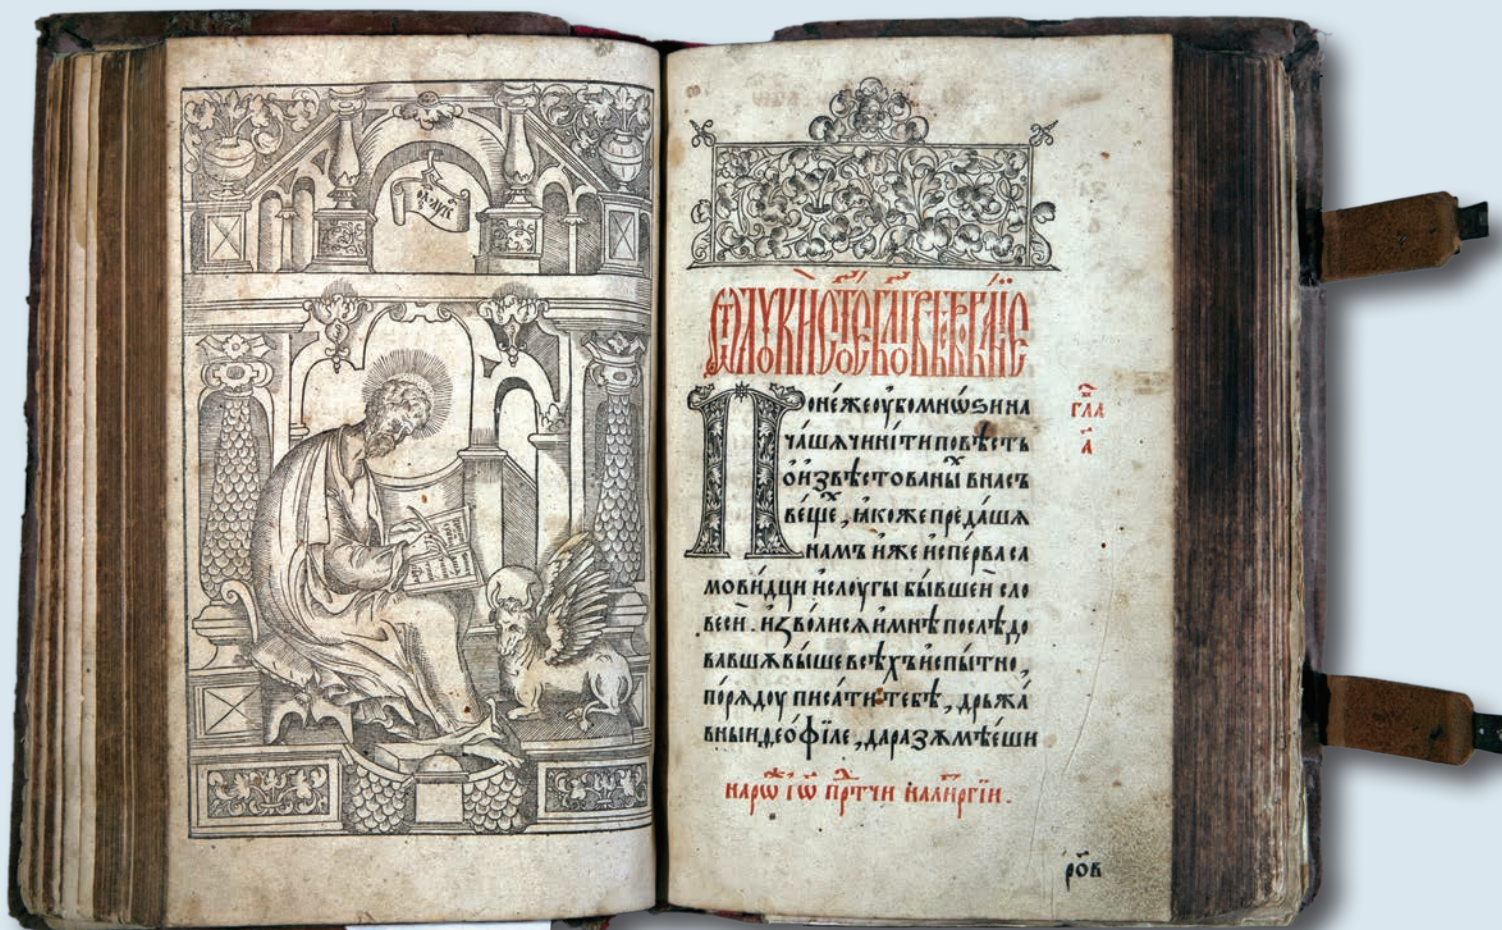 Ѿ лꙋки ст҃ое бл҃говѣствованїе
Поне́же оу҆бо мнѡ́ѕи на
ча́шѧ чини́ти повѣсть
о҆ и҆звѣстованы́ⷯ в насъ
ве́щеⷯ, ꙗ҆коже преда́шѧ
намъ и҆же и҆спе́рва са
мови́дци и҆ слоугы бы́вшеи сло
веси . и҆зво́лисѧ и҆ мнѣ послѣдо
вавшꙋ вы́ше всѣхъ и҆спытно ,
по́рѧдоу писа́ти тебѣ , дръжа́
вныи ѳео́фїле , да разꙋмѣеши
гл҃а
а҃
ро҃в